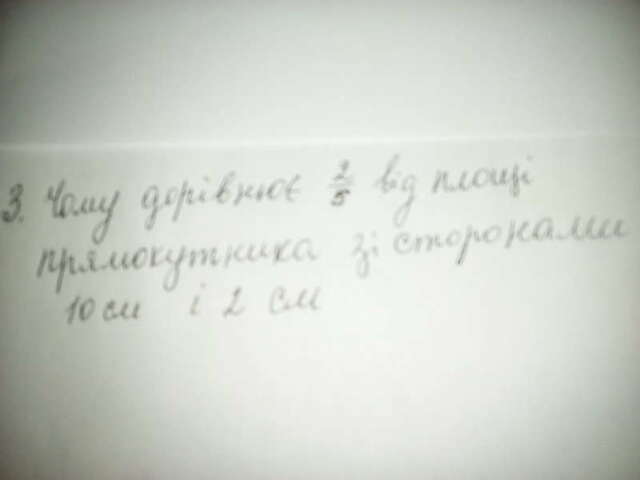 3. Чому дорівнює 2/5 від площі
прямокутника зі сторонами
10 см і 2 см